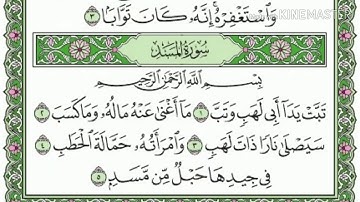 وَاسْتَغْفِرْهُ إِنَّهُ كَانَ تَوَّابًا ٣
KINEMASTER
سُورَةُ المَسَدِ
بِسْمِ اللَّهِ الرَّحْمَٰنِ الرَّحِيمِ
تَبَّتْ يَدَا أَبِي لَهَبٍ وَتَبَّ ١ مَا أَغْنَىٰ عَنْهُ مَالُهُ وَمَا كَسَبَ ٢
سَيَصْلَىٰ نَارًا ذَاتَ لَهَبٍ ٣ وَامْرَأَتُهُ حَمَّالَةَ الْحَطَبِ ٤
فِي جِيدِهَا حَبْلٌ مِّن مَّسَدٍ ٥